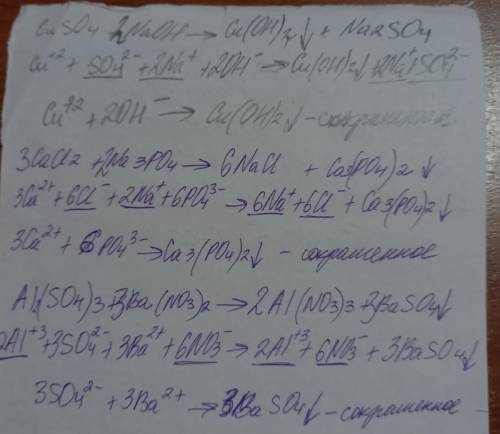 CuSO4 + 2NaOH → Cu(OH)2↓ + Na2SO4
Cu+2 + SO4 2- + 2Na+ + 2OH- → Cu(OH)2↓ + 2Na+ + SO4 2-
Cu+2 + 2OH- → Cu(OH)2↓ - сокращенное
3CaCl2 + 2Na3PO4 → 6NaCl + Ca3(PO4)2↓
3Ca2+ + 6Cl- + 2Na+ + 6PO4 3- → 6Na+ + 6Cl- + Ca3(PO4)2↓
3Ca2+ + 6PO4 3- → Ca3(PO4)2↓ - сокращенное
Al2(SO4)3 + 3Ba(NO3)2 → 2Al(NO3)3 + 3BaSO4↓
2Al+3 + 3SO4 2- + 3Ba2+ + 6NO3- → 2Al+3 + 6NO3- + 3BaSO4↓
3SO4 2- + 3Ba2+ → 3BaSO4↓ - сокращенное